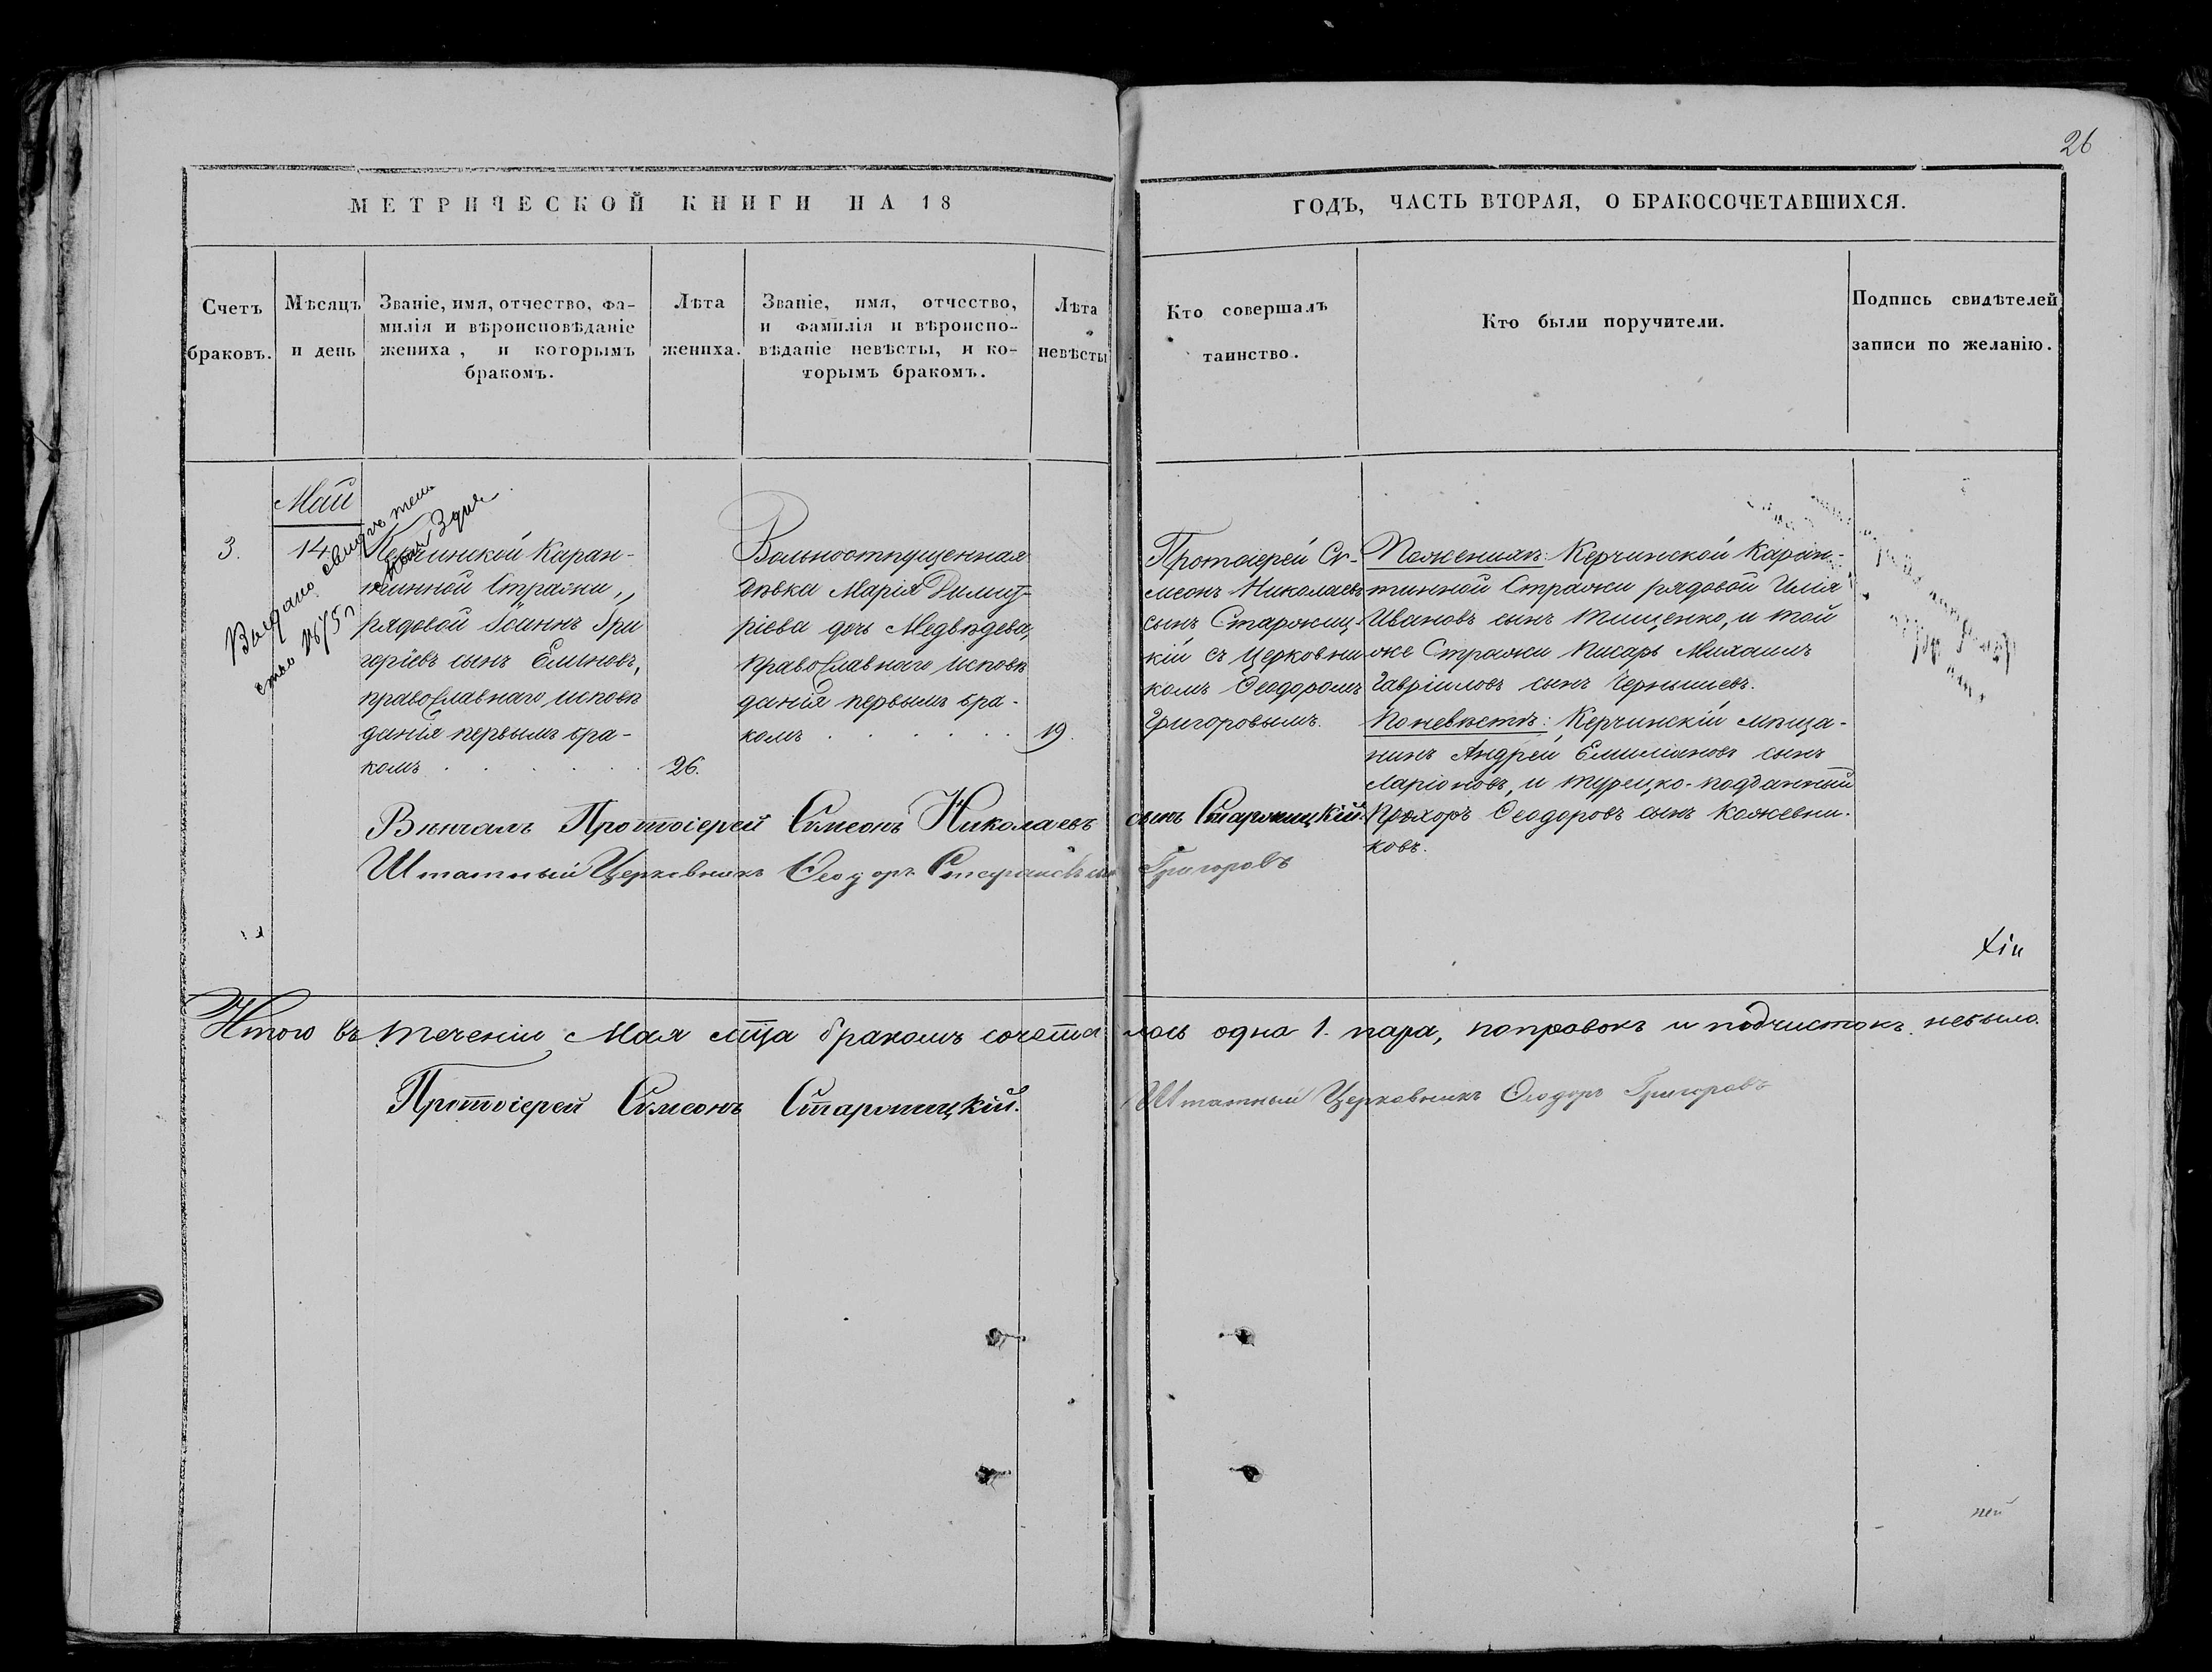 26
МЕТРИЧЕСКОЙ КНИГИ НА 18
ГОДЪ, ЧАСТЬ ВТОРАЯ, О БРАКОСОЧЕТАВШИХСЯ.
Счетъ
браковъ.
Мѣсяцъ
и день
Званіе, имя, отчество, фа-
милія и вѣроисповѣданіе
жениха, и которымъ
бракомъ.
Лѣта
жениха.
Званіе, имя, отчество,
и фамилія и вѣроиспо-
вѣданіе невѣсты, и ко-
торымъ бракомъ.
Лѣта
невѣсты
Кто совершалъ
таинство.
Кто были поручители.
Подпись свидѣтелей
записи по желанію.
3.
Май
14
Выдано свидѣтель
ство №75
Керчинской Каран-
тинной Стражи,
рядовой Іоаннъ Гри
горіевъ сынъ Елиновъ,
православнаго исповѣ
данія первымъ бра-
комъ
26.
Вольноотпущенная
дѣвка Марія Димит-
ріева дочь Медвѣдева,
православнаго исповѣ
данія первымъ бра-
комъ
19.
Протоіерей Сѵ-
меонъ Николаевъ
сынъ Старониц-
кій съ церковни
комъ Ѳеодоромъ
Григоровымъ.
По женихѣ: Керчинской Каран-
тинной Стражи рядовой Илія
Ивановъ сынъ Тищенко, и той
же Стражи писарь Михаилъ
Гавріиловъ сынъ Чернышевъ.
По невѣстѣ: Керчинскій мѣща-
нинъ Андрей Емиліановъ сынъ
Ларіоновъ, и турецко-подданный
Прохоръ Ѳеодоровъ сынъ Кожевни-
ковъ.
Вѣнчалъ Протоіерей Сѵмеонъ Николаевъ сынъ Староницкій.
Штатный Церковникъ Ѳеодоръ Стефановъ сынъ Григоровъ
Итого въ теченіи Мая мца бракомъ сочета лось одна 1. пара, поправокъ и подчистокъ небыло.
Протоіерей Сѵмеонъ Староницкій.
Штатный Церковникъ Ѳеодоръ Григоровъ